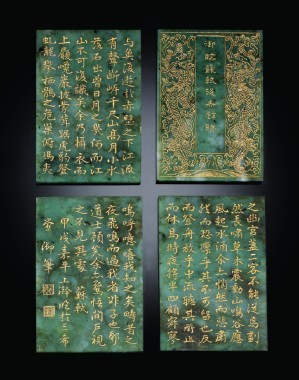 御臨蘇軾後赤壁賦
與魚復游於赤壁之下江流
有聲斷岸千尺山高月小水
落石出曾日月之幾何而江
山不可復識矣余乃攝衣而
上履巉巖披蒙茸踞虎豹登
虬龍攀栖鶻之危巢俯馮夷
之幽宮蓋二客不能從焉劃
然長嘯草木震動山鳴谷應
風起水涌余亦悄然而悲肅
然而恐凜乎其不可留也反
而登舟放乎中流聽其所止
而休焉時夜將半四顧寂寥
嗚呼噫嘻我知之矣疇昔之
夜飛鳴而過我者非子也耶
道士顧笑余亦驚悟開戶視
之不見其處 蘇軾
甲戌嘉平上澣臨於三希
堂御筆